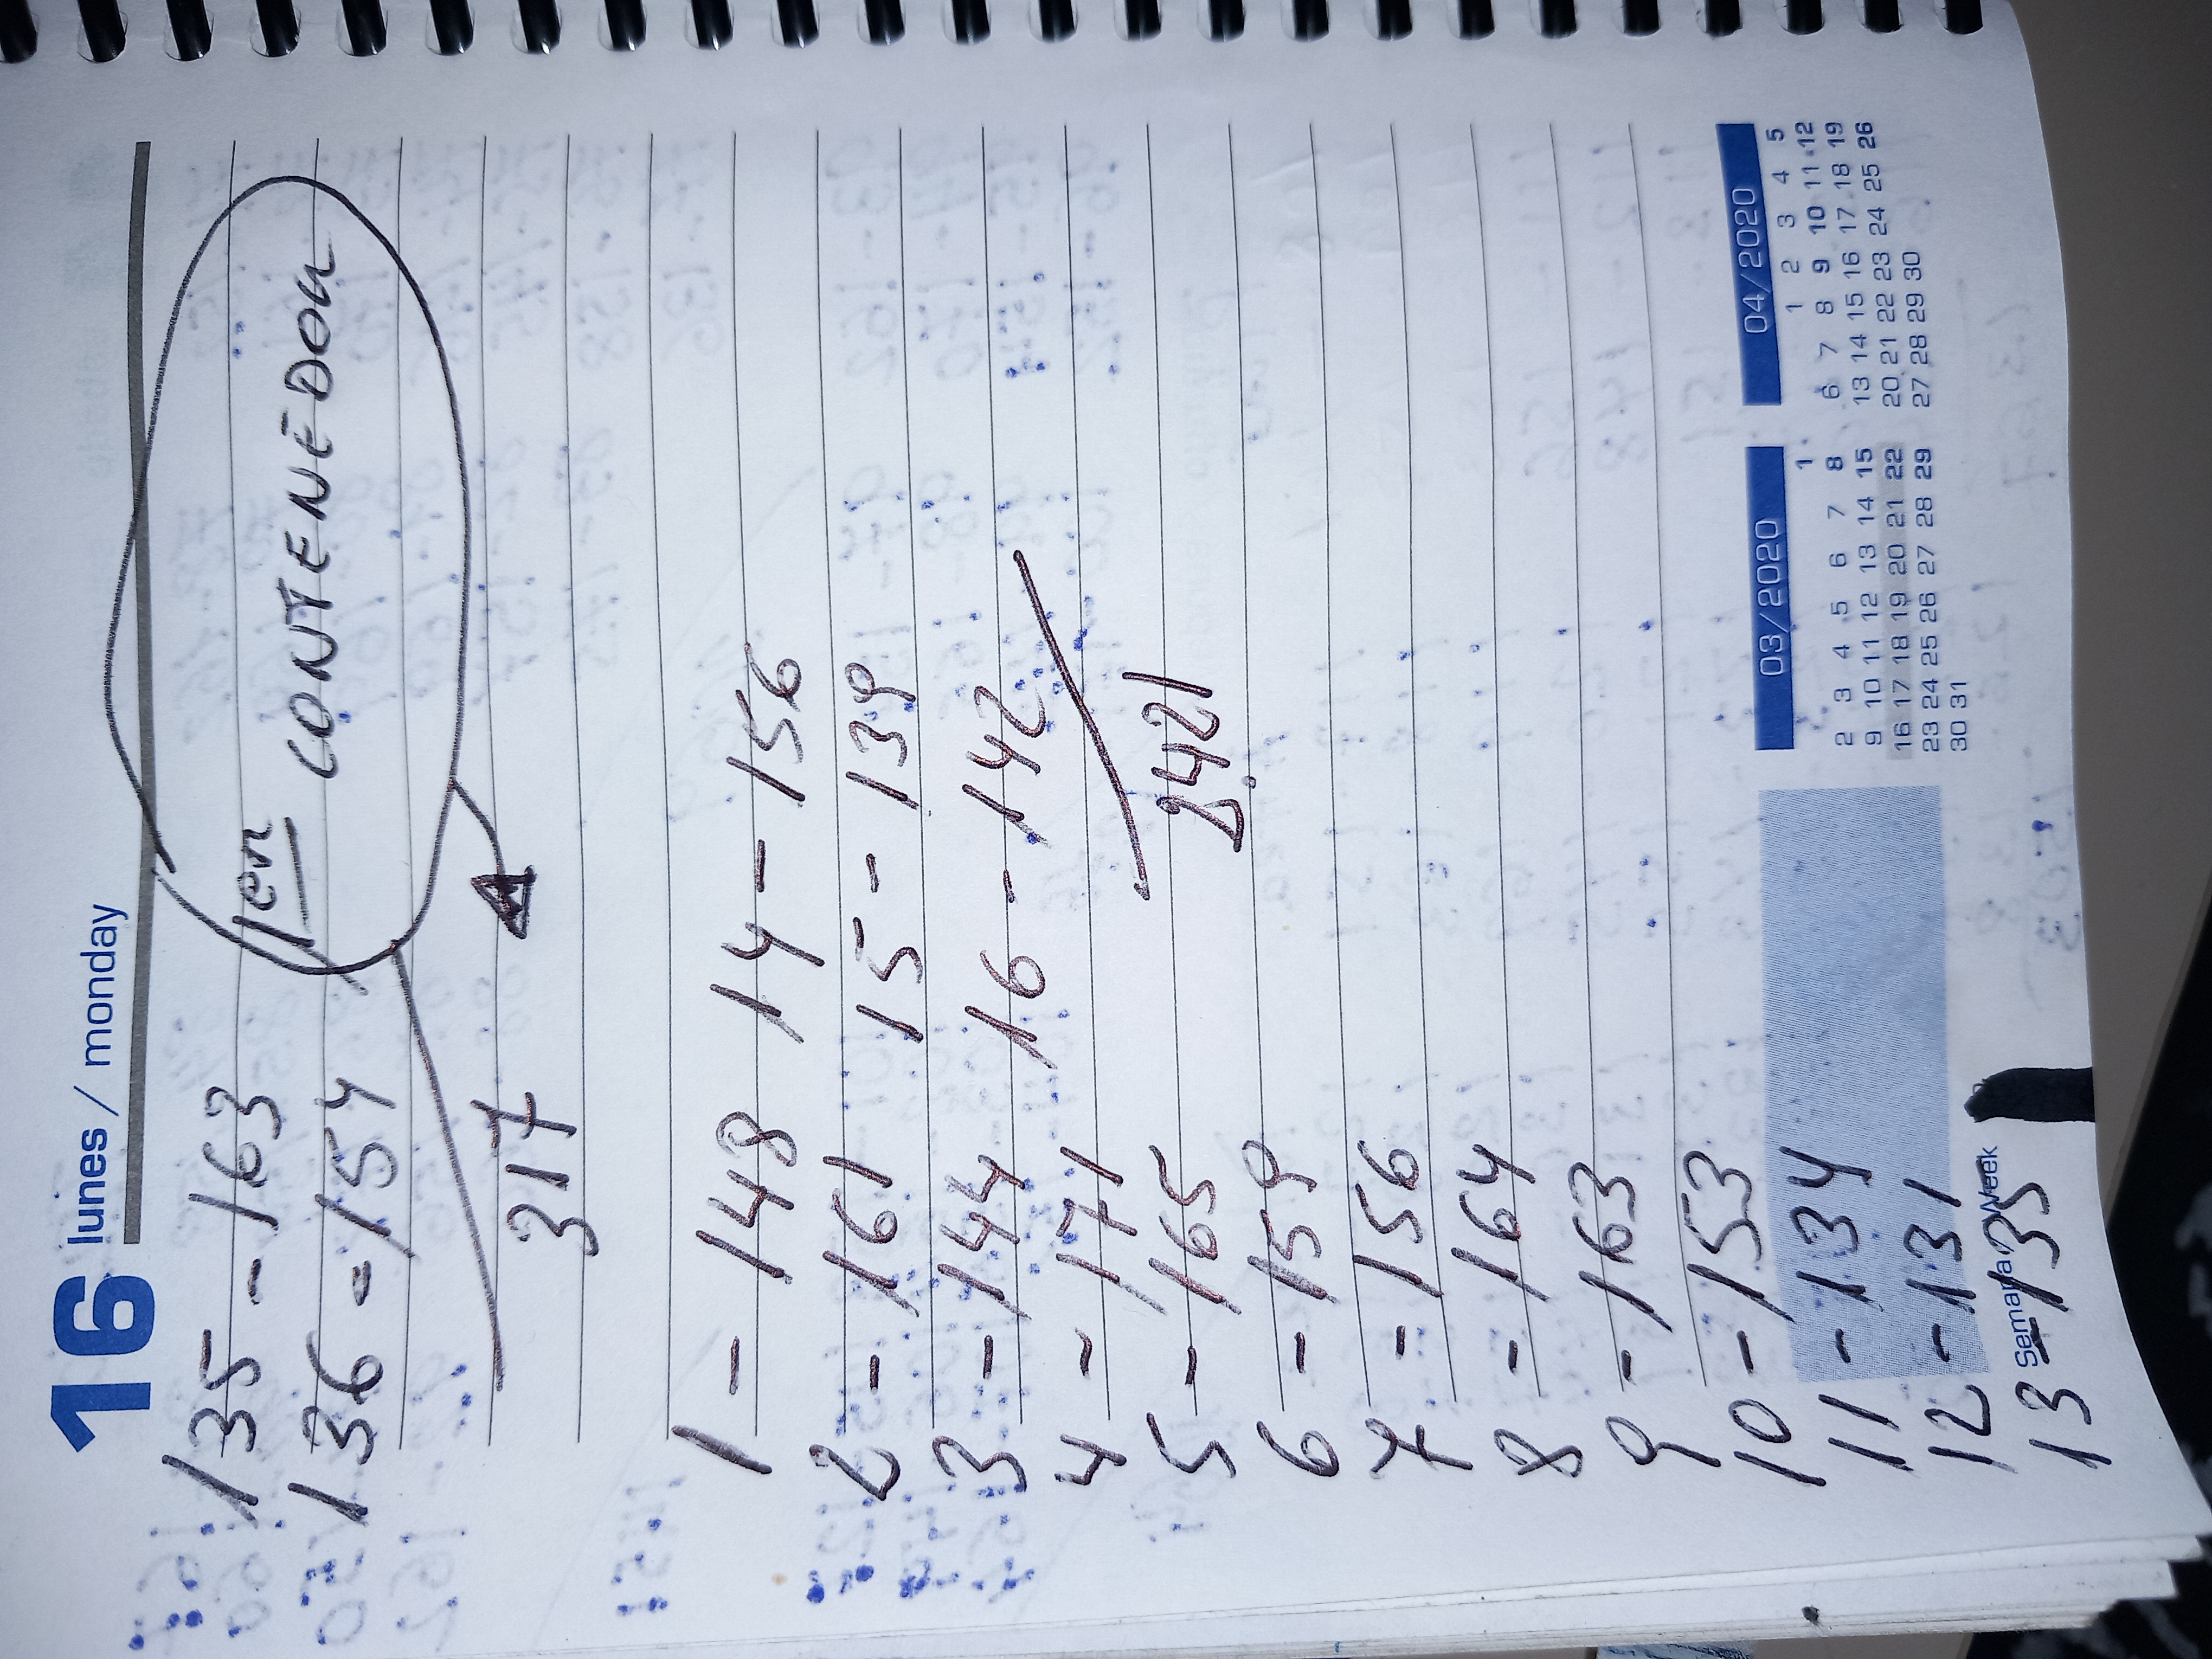 16 lunes / monday
135 - 163
136 - 154
1er CONTENEDOR
317
1 - 148 14 - 156
2 - 161 15 - 139
3 - 144 16 - 142
4 - 171
2.421
5 - 165
6 - 159
7 - 156
8 - 164
9 - 163
10 - 153
11 - 134
12 - 131
Semana/Week
13 - 135
03/2020
1
2 3 4 5 6 7 8
9 10 11 12 13 14 15
16 17 18 19 20 21 22
23 24 25 26 27 28 29
30 31
04/2020
1 2 3 4 5
6 7 8 9 10 11 12
13 14 15 16 17 18 19
20 21 22 23 24 25 26
27 28 29 30